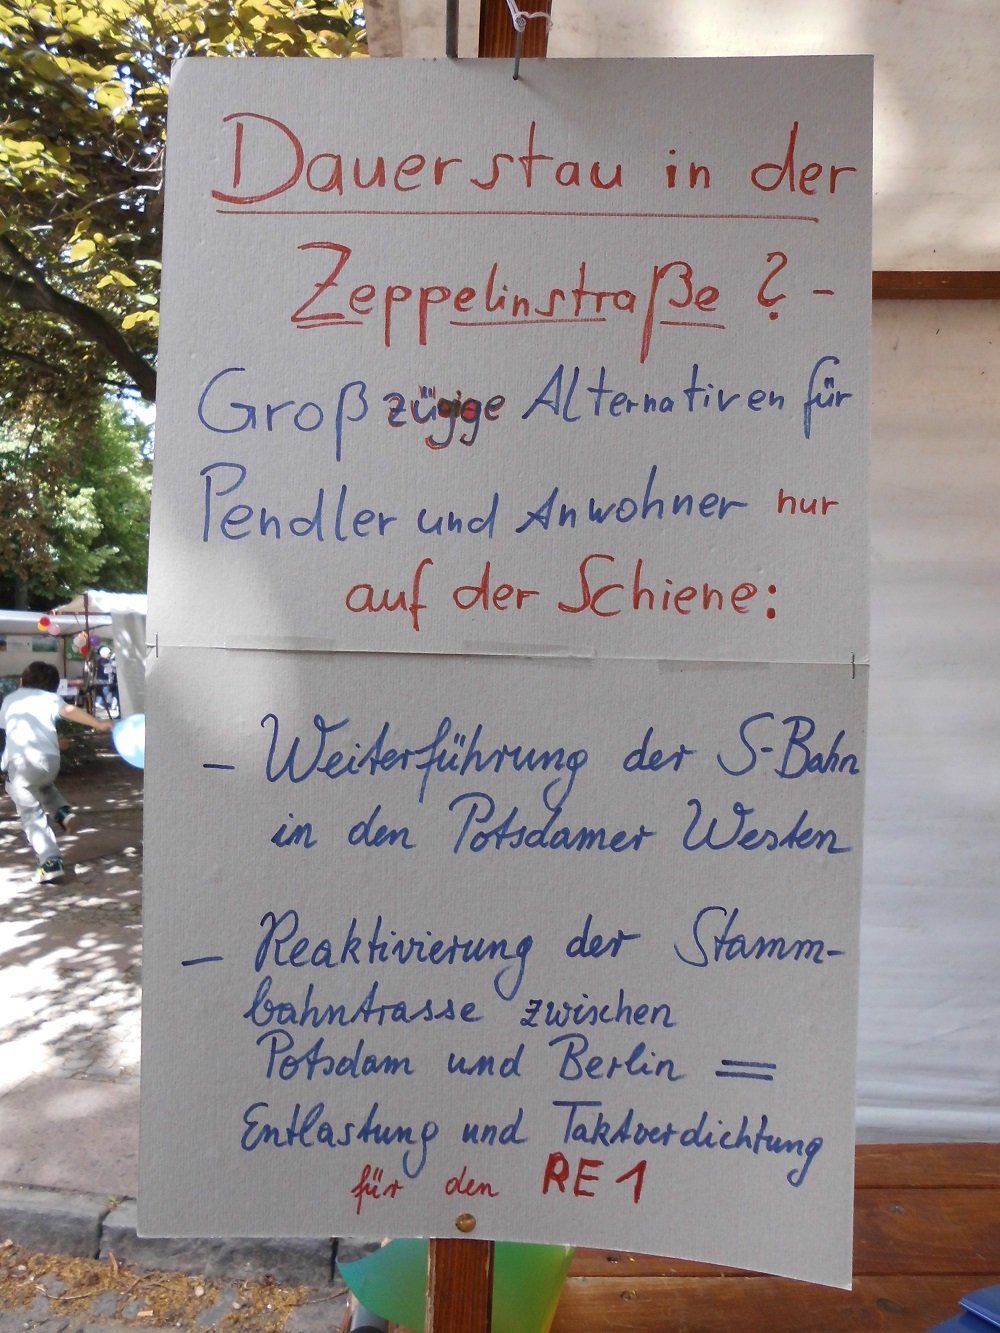 Dauerstau in der
Zeppelinstraße ? -
Großzügige Alternativen für
Pendler und Anwohner nur
auf der Schiene:
- Weiterführung der S-Bahn
in den Potsdamer Westen
- Reaktivierung der Stamm-
bahntrasse zwischen
Potsdam und Berlin =
Entlastung und Taktverdichtung
für den RE 1